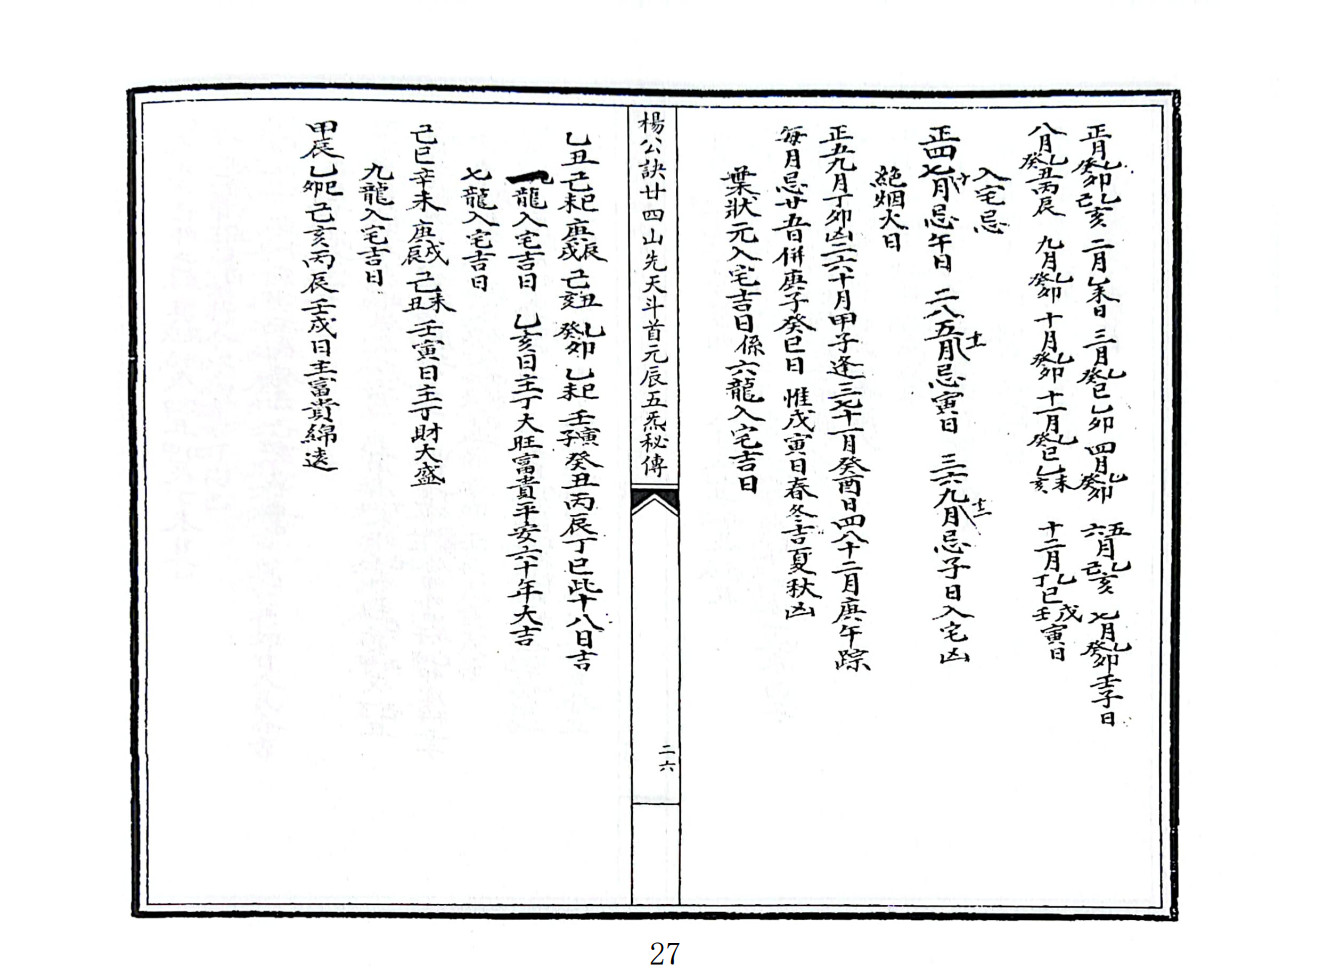 正月乙癸卯乙己亥 二月乙未日 三月乙癸巳乙卯 四月乙癸卯 五六月乙己亥 七月乙癸卯壬子日
八月乙癸丑丙辰 九月乙癸卯 十月乙癸卯 十一月乙癸巳乙未亥 十二月乙丁巳戊壬寅日
入宅忌
正四七十月忌午日 二八五十一月忌寅日 三六九十二月忌子日入宅凶
絕烟火日
正五九月丁卯凶二六十月甲子逢三七十一月癸酉日四八十二月庚午踪
每月忌廿五日併庚子癸巳日 惟戊寅日春冬吉夏秋凶
葉狀元入宅吉日係六龍入宅吉日
楊公訣廿四山先天斗首元辰五炁秘傳
二六
乙丑己巳未庚辰戌己丑亥乙癸卯乙巳未壬寅子癸丑丙辰丁巳此十八日吉
龍入宅吉日 乙亥日主丁大旺富貴平安六十年大吉
七龍入宅吉日
己巳辛未庚戌辰己未丑壬寅日主丁財大盛
九龍入宅吉日
甲辰乙巳卯己亥丙辰壬戌日主富貴綿遠
27